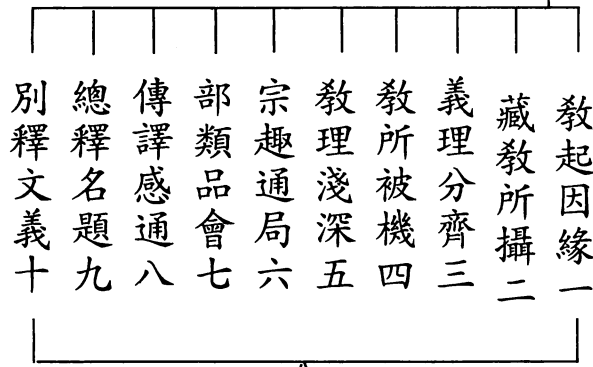 教起因緣一
藏教所攝二
義理分齊三
教所被機四
教理淺深五
宗趣通局六
部類品會七
傳譯感通八
總釋名題九
別釋文義十